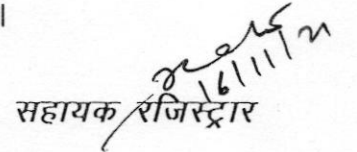 16/11/21
सहायक रजिस्ट्रार